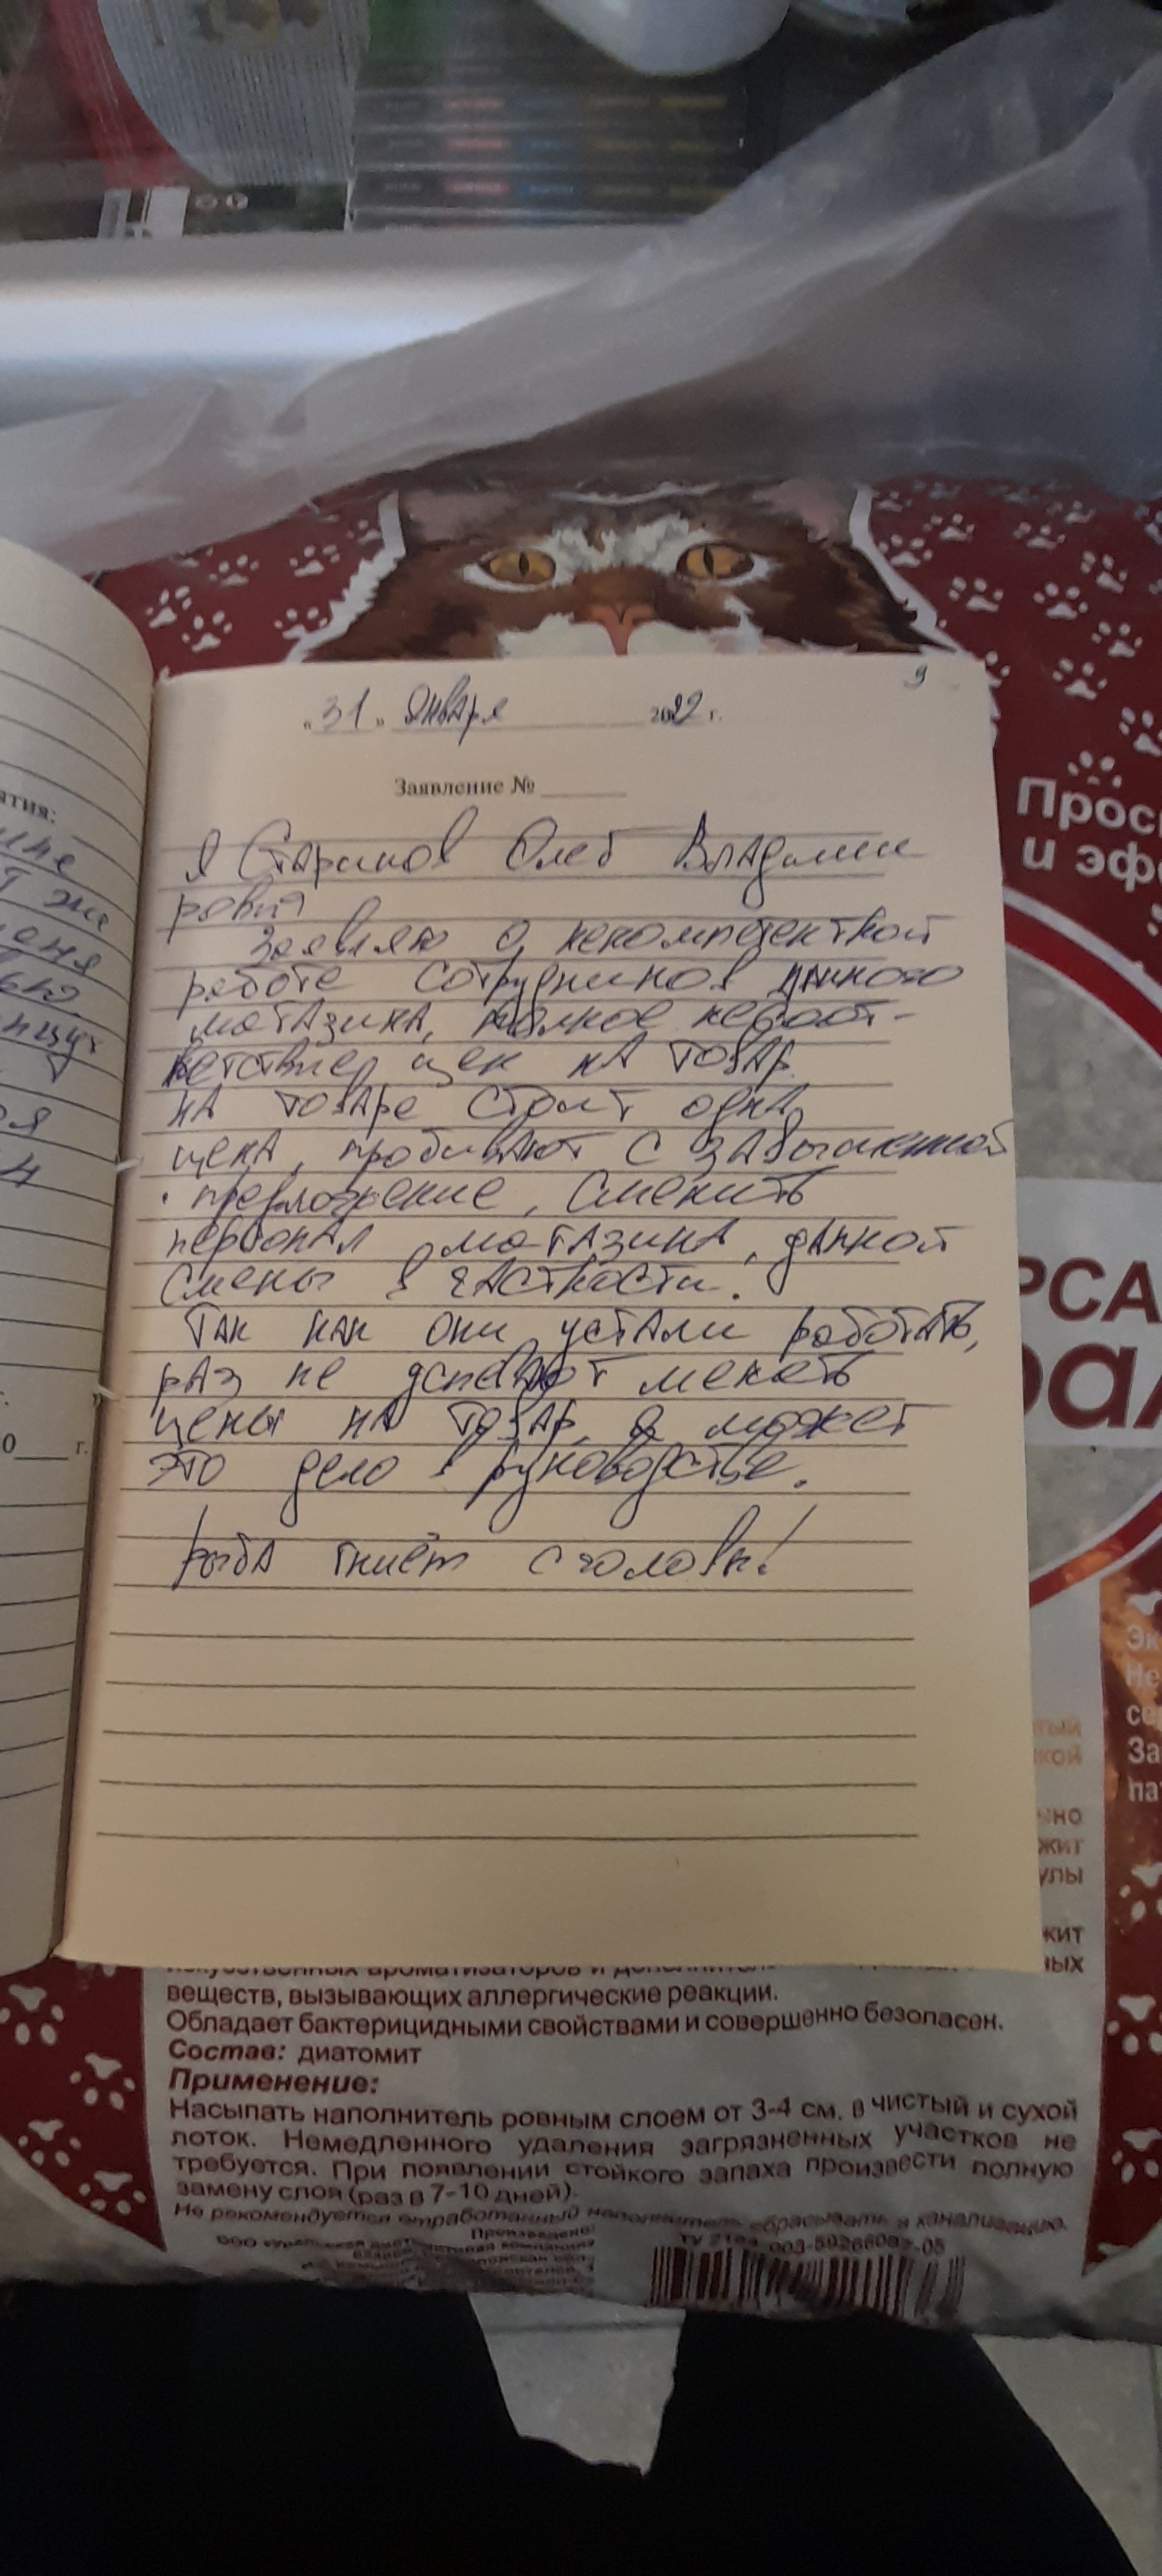 9
« 31 » января 2022 г.
Заявление №
Я Стариков Олег Владими
рович
Заявляю о некомпетентной
работе сотрудников данного
магазина, полное несоот-
ветствие цен на товар.
на товаре стоит одна
цена, пробивают с завышенной
· предложение, сменить
персонал магазина, данной
смены в частности.
Так как они устали работать,
раз не успевают менять
цены на товар, а может
это дело в руководстве.
рыба гниёт с головы!
ятия:
г.
0 г.
Прос
и эфф
РСА
ра
Эк
Не
се
За
па
тый
кой
жит
улы
жит
ных
искусственных ароматизаторов и
веществ, вызывающих аллергические реакции.
Обладает бактерицидными свойствами и совершенно безопасен.
Состав: диатомит
Применение:
Насыпать наполнитель ровным слоем от 3-4 см. в чистый и сухой
лоток. Немедленного удаления загрязненных участков не
требуется. При появлении стойкого запаха произвести полную
замену слоя (раз в 7-10 дней).
Не рекомендуется отработанный наполнитель сбрасывать в канализацию.
Произведено: